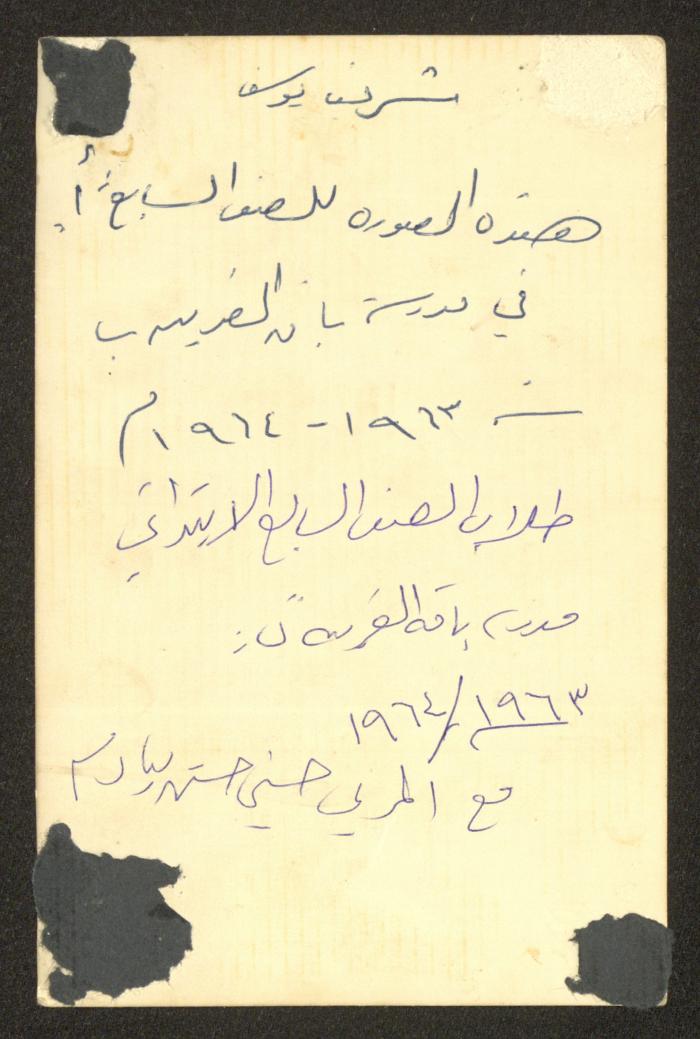 شريف يوسف
هذه الصورة للصف السابع "أ"
في مدرسة باقة الغربية ب
سنة ١٩٦٣ - ١٩٦٤م
طلاب الصف السابع الابتدائي
مدرسة باقة الغربية
١٩٦٣/١٩٦٤
مع المربي حسني